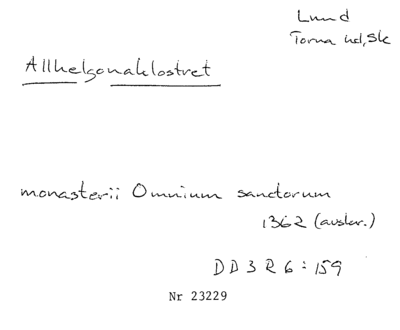 Lund
Torna hd, Sk
Allhelgonaklostret
monasterii Omnium sanctorum
1362 (avskr.)
DD 3 R 6 : 159
Nr 23229